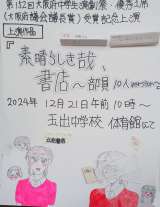 第132回大阪府中学生演劇祭 優秀二席
(大阪府議会議長賞)受賞記念上演
上演作品
『素晴らしき哉、
書店〜部員10人
2024年 12月21日午前10時〜
玉出中学校 体育館にて